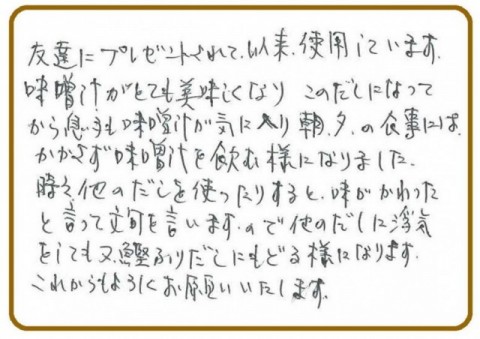 友達にプレゼントされて、以来、使用しています。
味噌汁がとても美味しくなり このだしになって
から息子も味噌汁が気に入り 朝、夕、の食事には、
かかさず味噌汁を飲む様になりました。
時々他のだしを使ったりすると、味がかわった
と言って文句を言います。ので他のだしに浮気
をしても又、鰹ふりだしにもどる様になります。
これからもよろしくお願いいたします。